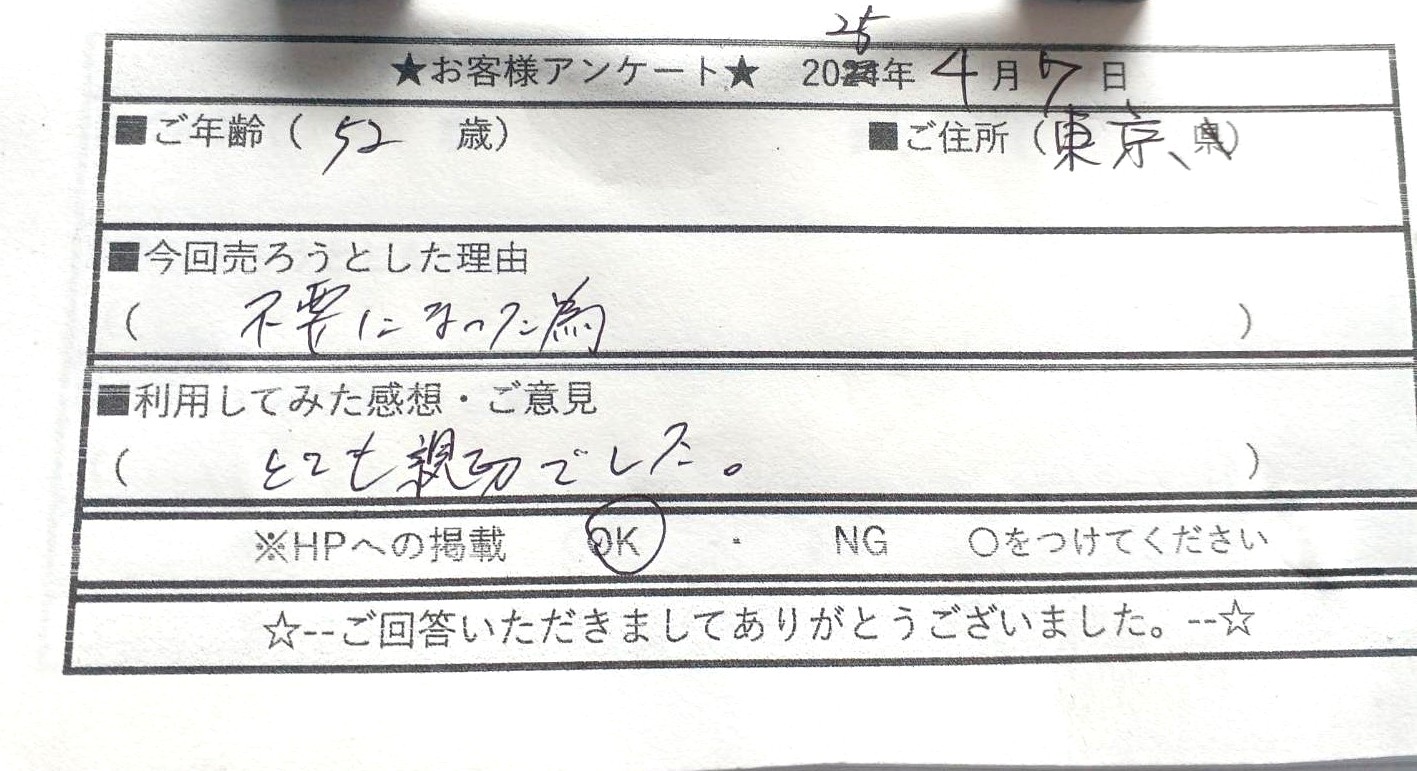 ★お客様アンケート★ 2025年 4月7日
■ご年齢（ 52 歳） ■ご住所（東京、県）
■今回売ろうとした理由
（ 不要になった為 ）
■利用してみた感想・ご意見
（ とても親切でした。 ）
※HPへの掲載 OK ・ NG ○をつけてください
☆--ご回答いただきましてありがとうございました。--☆